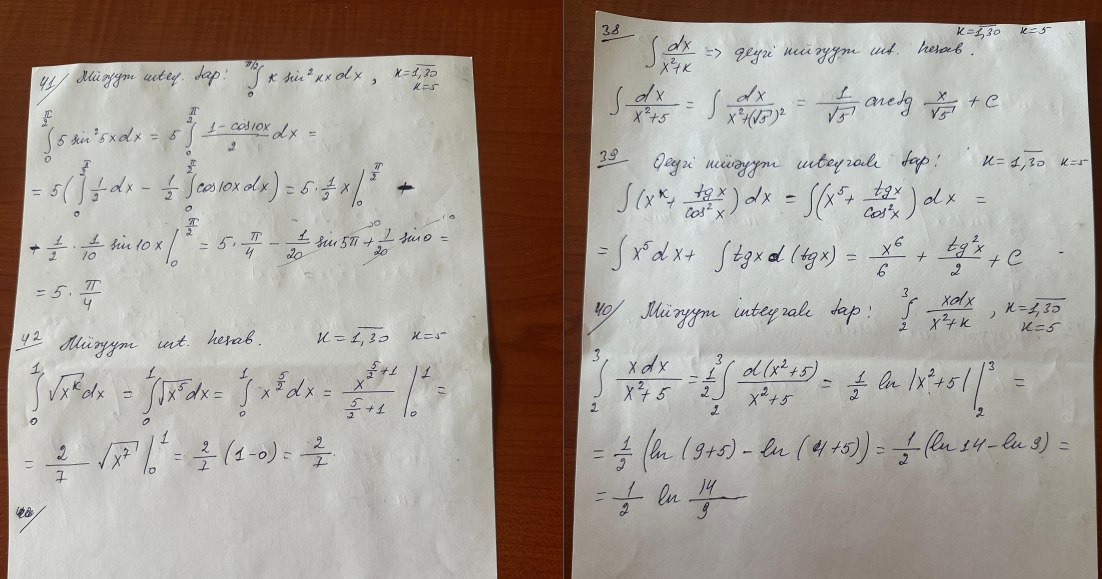 41) Müəyyən inteq. tap: ∫₀^{π/2} k sin² kx dx, k=1,30
k=5
∫₀^{π/2} 5 sin² 5x dx = 5 ∫₀^{π/2} (1-cos10x)/2 dx =
= 5 ( ∫₀^{π/2} 1/2 dx - 1/2 ∫₀^{π/2} cos10x dx ) = 5·1/2 x |₀^{π/2} -
- 1/2 · 1/10 sin10x |₀^{π/2} = 5·π/4 - 1/20 sin5π + 1/20 sin0 =
= 5 · π/4
42 Müəyyən int. hesab. k=1,30 k=5
∫₀¹ √x^k dx = ∫₀¹ √x⁵ dx = ∫₀¹ x^{5/2} dx = x^{5/2+1}/(5/2+1) |₀¹ =
= 2/7 √x⁷ |₀¹ = 2/7 (1-0) = 2/7
38 k=1,30 k=5
∫ dx/(x²+k) => qeyri müəyyən int. hesab.
∫ dx/(x²+5) = ∫ dx/(x²+(√5)²) = 1/√5 arctg x/√5 + C
39 Qeyri müəyyən inteqralı tap: k=1,30 k=5
∫ (x^k + tgx/cos²x) dx = ∫ (x⁵ + tgx/cos²x) dx =
= ∫ x⁵ dx + ∫ tgx d(tgx) = x⁶/6 + tg²x/2 + C
40) Müəyyən inteqralı tap: ∫₂³ xdx/(x²+k), k=1,30
k=5
∫₂³ xdx/(x²+5) = 1/2 ∫₂³ d(x²+5)/(x²+5) = 1/2 ln |x²+5| |₂³ =
= 1/2 (ln (9+5) - ln (4+5)) = 1/2 (ln 14 - ln 9) =
= 1/2 ln 14/9